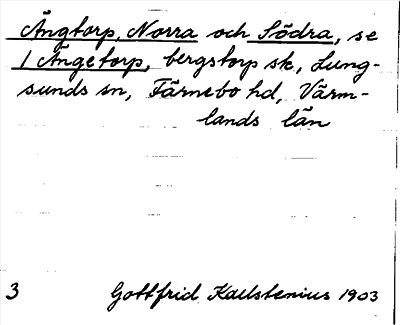 Ängtorp, Norra och Södra, se
1 Ängetorp, bergstorp sk, Lung-
sunds sn, Färnebo hd, Värm-
lands län
3 Gottfrid Kallstenius 1903